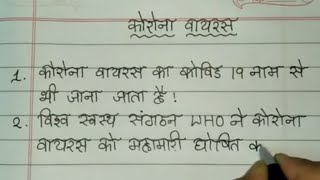 कोरोना वायरस
1. कोरोना वायरस का कोविड 19 नाम से
भी जाना जाता है!
2. विश्व स्वस्थ संगठन WHO ने कोरोना
वायरस को महामारी घोषित क